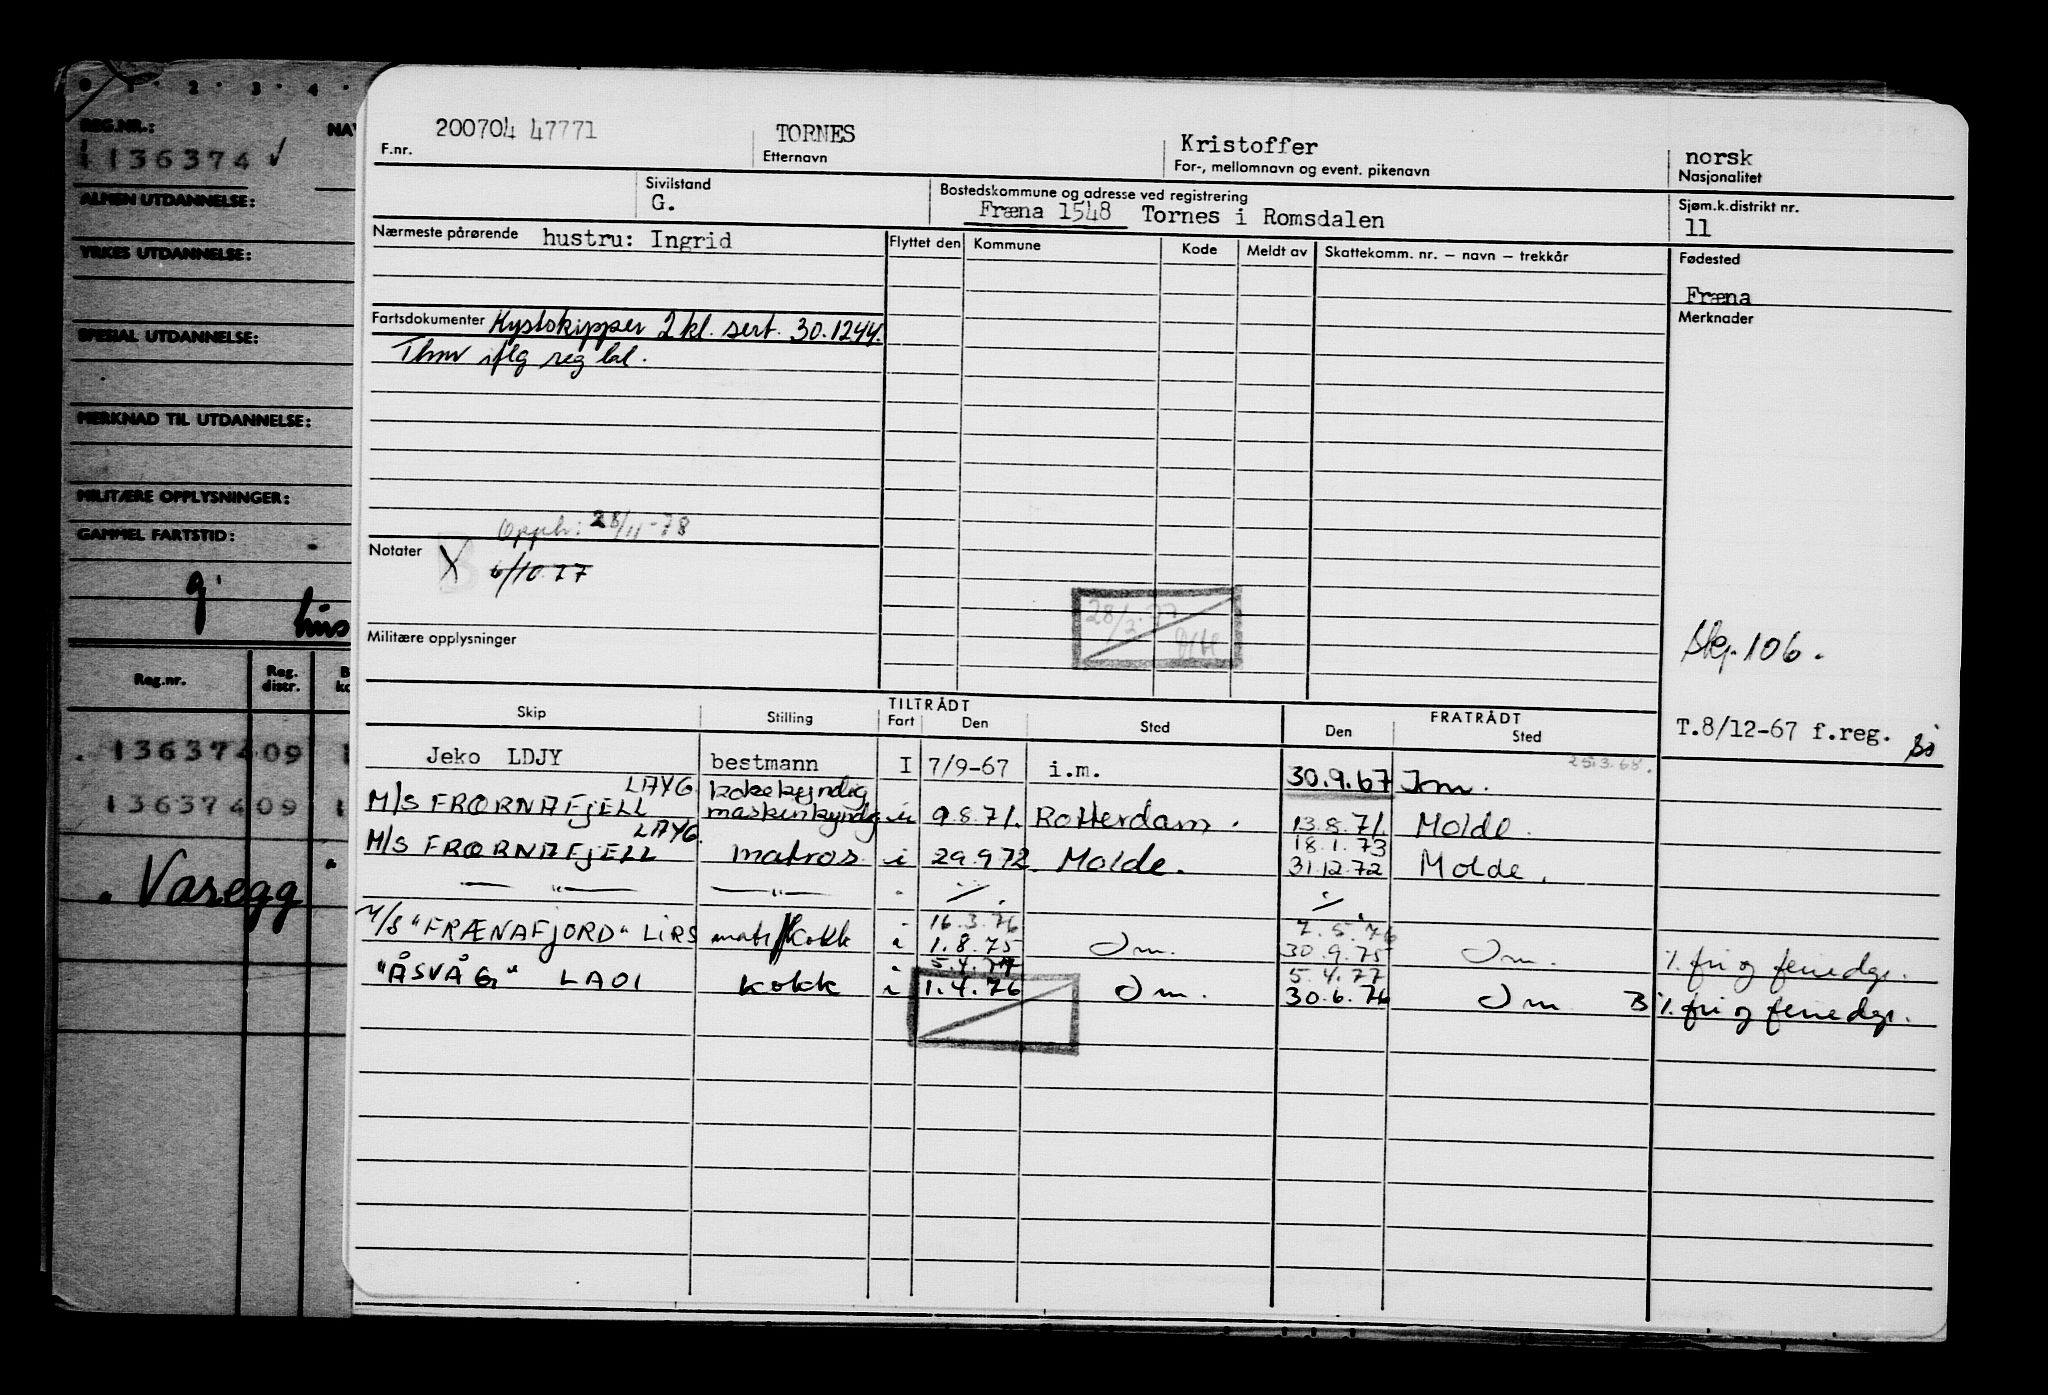 0 · 1 · 2 · 3 · 4 ·
REG.NR.: NAV
1136374 ✓
ALMEN UTDANNELSE:
YRKES UTDANNELSE:
SPESIAL UTDANNELSE:
MERKNAD TIL UTDANNELSE:
MILITÆRE OPPLYSNINGER:
GAMMEL FARTSTID:
g.
hus
Reg.nr. Reg. distr. B ko
13637409 1
13637409 1
" Varegg "
200704 47771 TORNES Kristoffer norsk
F.nr. Etternavn For-, mellomnavn og event. pikenavn Nasjonalitet
Sivilstand Bostedskommune og adresse ved registrering Sjøm.k.distrikt nr.
G. Fræna 1548 Tornes i Romsdalen 11
Nærmeste pårørende hustru: Ingrid Flyttet den Kommune Kode Meldt av Skattekomm. nr. – navn – trekkår Fødested
Fræna
Fartsdokumenter Kystskipper 2 kl. sert. 30.1244. Merknader
Thm iflg reg bl.
Opph: 28/11-78
Notater X 6/10.77
28/3.77
Militære opplysninger
Skj. 106.
TILTRÅDT FRATRÅDT
Skip Stilling Fart Den Sted Den Sted
T.8/12-67 f.reg.
Jeko LDJY bestmann I 7/9-67 i.m. 30.9.67 Im. 25.3.68.
LAYG kokekyndig
M/S FRÆRNAFJELL maskinkyndig u 9.8.71. Rotterdam. 13.8.71. Molde.
LAYG. 18.1.73
M/S FRÆRNAFJELL matros i 29.9.72 Molde. 31.12.72 Molde.
— " — — " — " ·/. ·/.
16.3.76 7.5.76
M/S "FRÆNAFJORD" LIRS matr/kokk i 1.8.75 Im. 30.9.75 Im. ·/. fri og feriedgr.
5.4.77 5.4.77
"ÅSVÅG" LAOI kokk i 1.4.76 Im. 30.6.76 Im B ·/. fri og feriedgr.